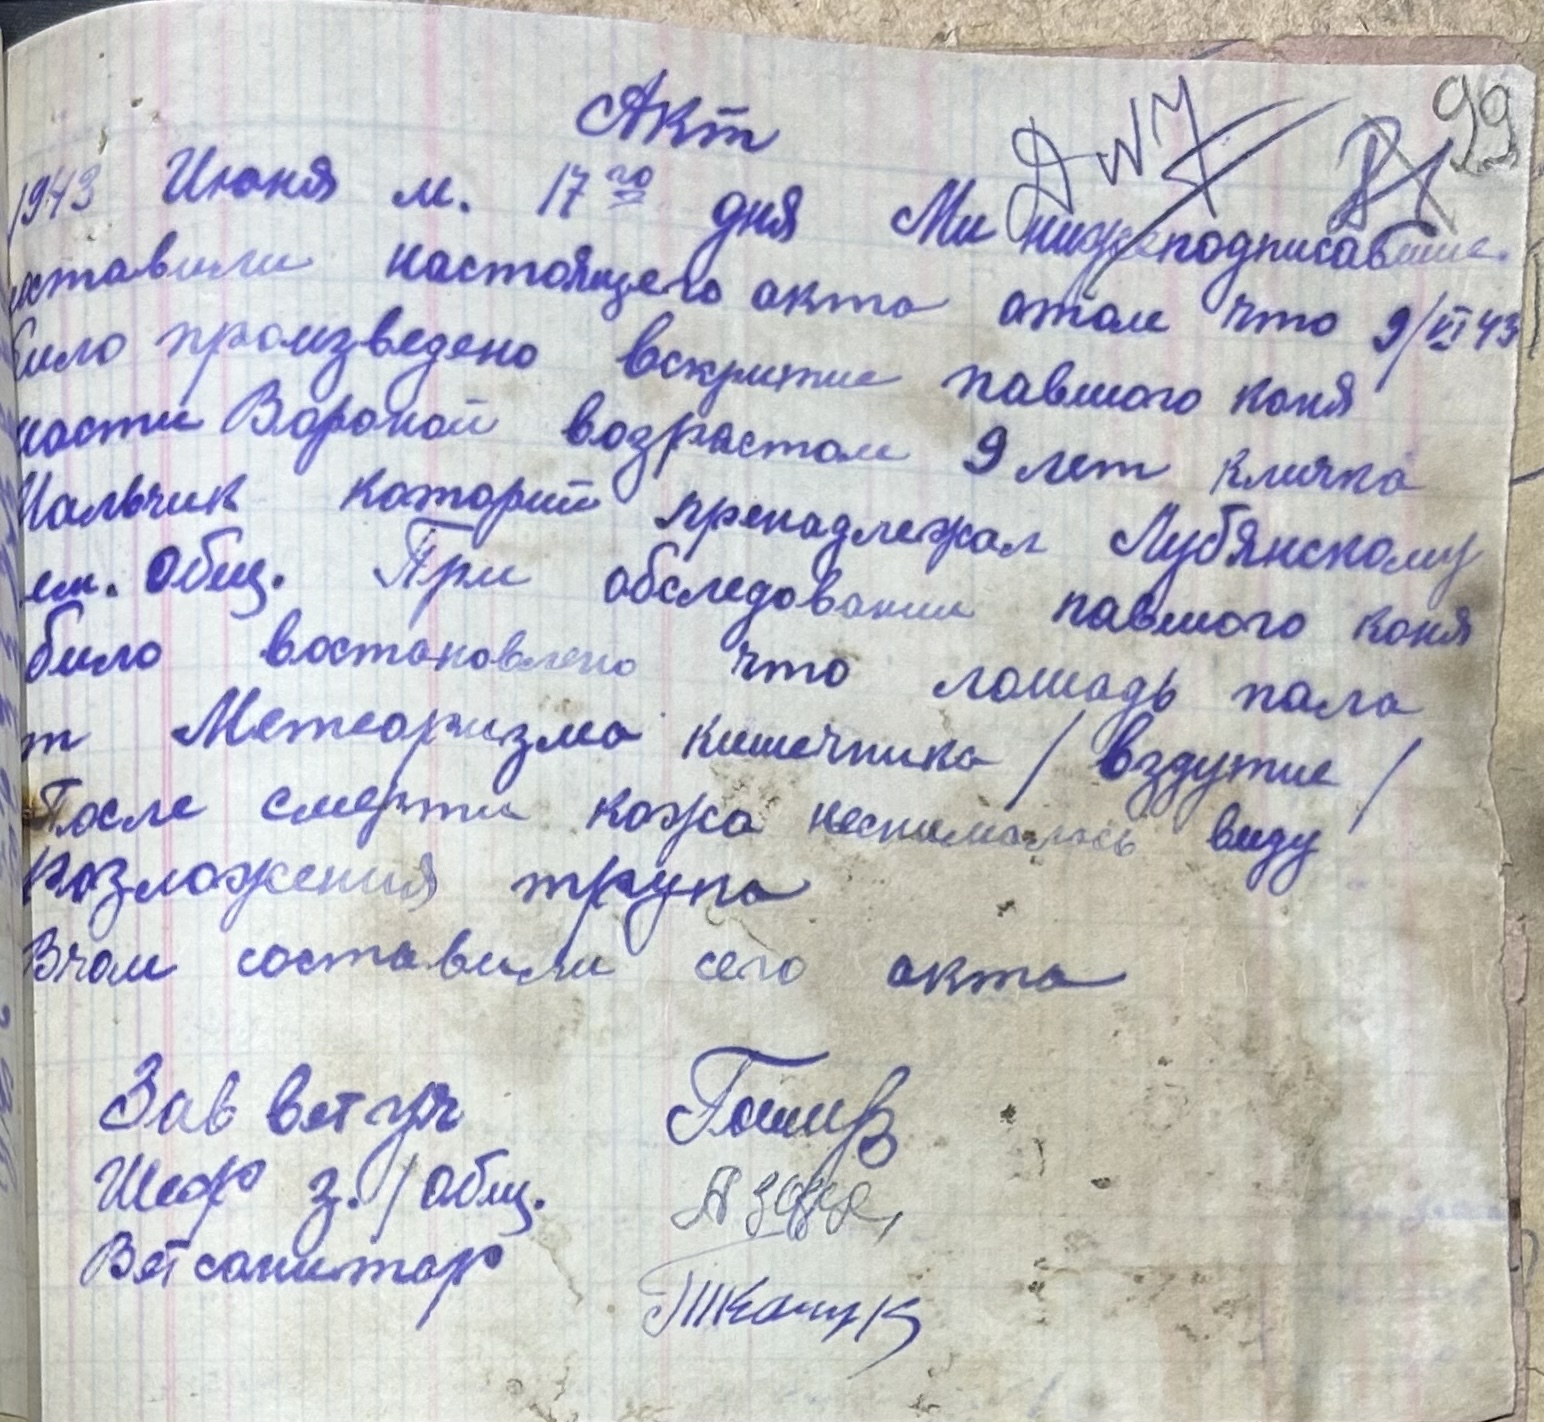 99
Акт
1943 Июня м. 17го дня Ми нижеподписавшие.
составили настоящего акта отом что 9/VI 43
било произведено вскритие павшого коня
масти Вороной возрастом 9 лет кличка
Мальчик каторий пренадлежал Лубянскому
зем. общ. При обследовании павшого коня
било востановлено что лошадь пала
от Метеоризма кишечника / вздутие /
После смерти кожа неснималась виду
Розложения трупа
Вчом составили сего акта
Зав вет уч
Шеф з./общ.
Ветсанитар Ткачук